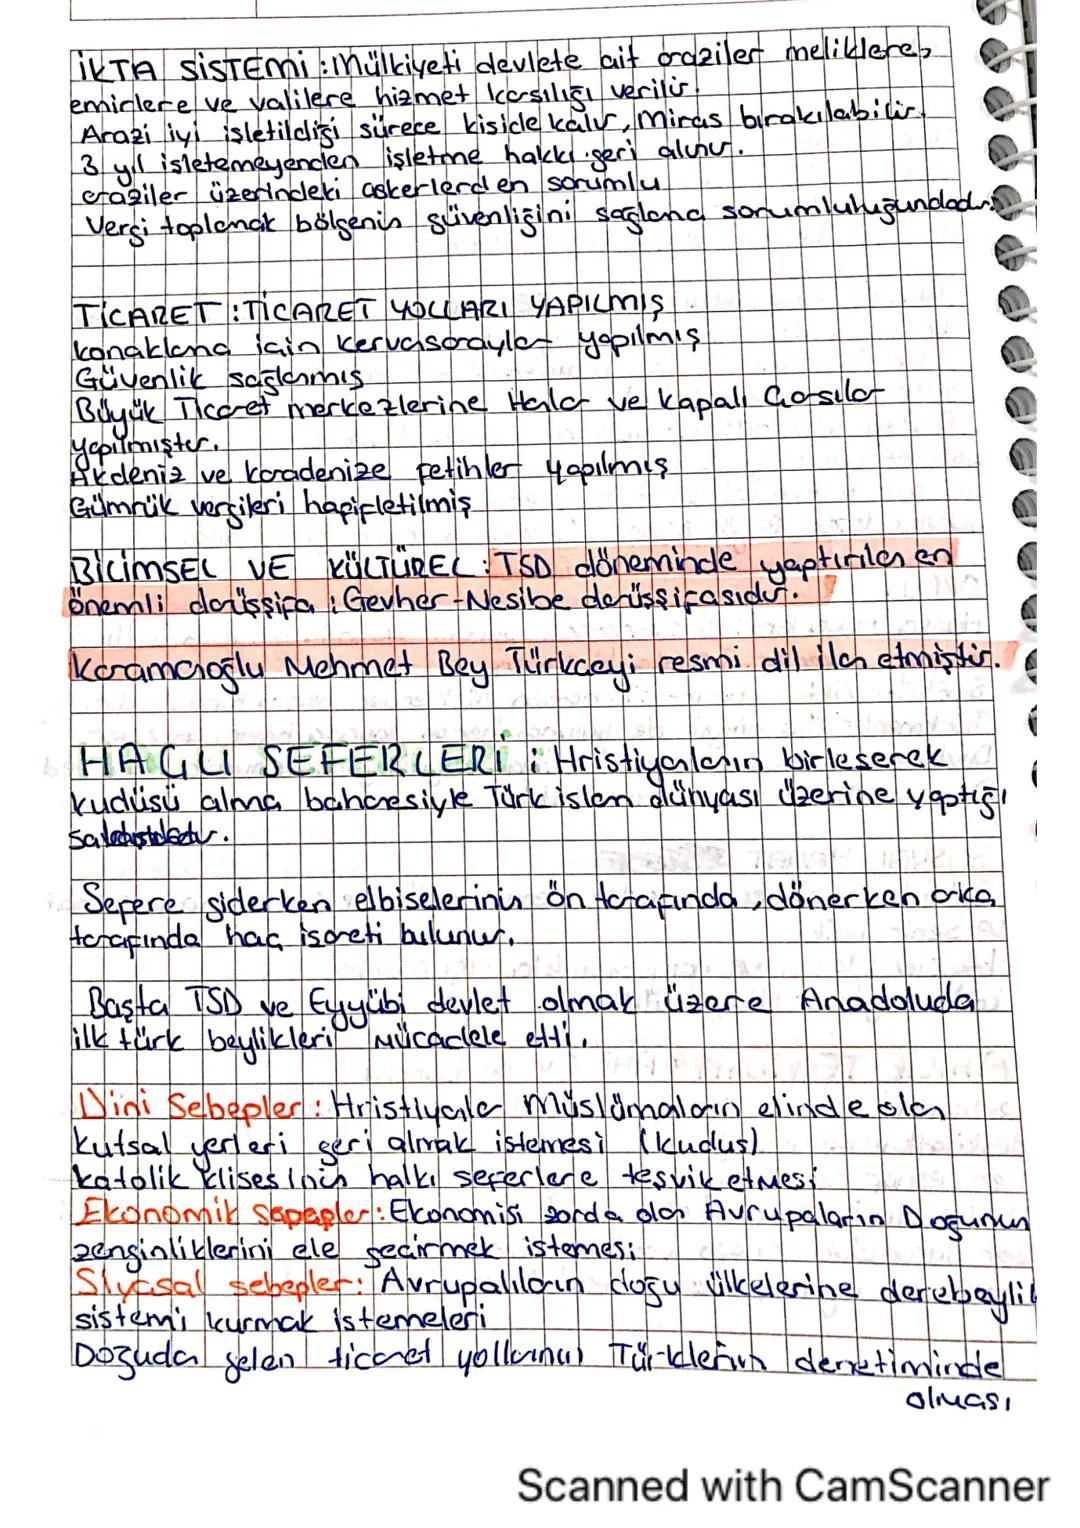 İKTA SİSTEMİ : Mülkiyeti devlete ait araziler meliklere,
emirlere ve valilere hizmet karsılığı verilir.
Arazi iyi işletildiği sürece kiside kalır, miras bırakılabilir.
3 yıl isletemeyenden işletme hakkı geri alınır.
eraziler üzerindeki askerlerden sorumlu
Vergi toplamak bölgenin güvenliğini sağlama sorumluluğundadır.
TİCARET : TİCARET YOLLARI YAPILMIŞ
konaklama için kervasaraylar yapılmış
Güvenlik sağlamış
Büyük Ticaret merkezlerine Halar ve kapalı Çarsılar
yapılmıştır.
Akdeniz ve karadenize fetihler yapılmış
Gümrük vergileri hafifletilmiş
BİCİMSEL VE KÜLTÜREL : TSD döneminde yaptırılan en
önemli darüşşifa : Gevher-Nesibe darüşşifasıdır.
Karamanoğlu Mehmet Bey Türkçeyi resmi dil ilan etmiştir.
HAÇLI SEFERLERİ : Hristiyanların birleserek
kudüsü alma bahanesiyle Türk islam dünyası üzerine yaptığı
Sefere giderken elbiselerinin ön tarafında, dönerken arka
tarafında haç isareti bulunur.
Başta TSD ve Eyyübi devlet olmak üzere Anadoluda
ilk türk beylikleri mücadele etti.
Dini Sebepler : Hristiyanlar Müslümaların elinde olan
kutsal yerleri geri almak istemesi (kudus)
katolik klisesinin halkı seferlere tesvik etmesi
Ekonomik sepepler : Ekonomisi zorda olan Avrupaların Doğunun
zenginliklerini ele geçirmek istemesi
Siyasal sebepler : Avrupalıların doğu ülkelerine derebeylik
sistemi kurmak istemeleri
Doğuda gelen ticaret yollarının Türklerin denetiminde
olması
Scanned with CamScanner